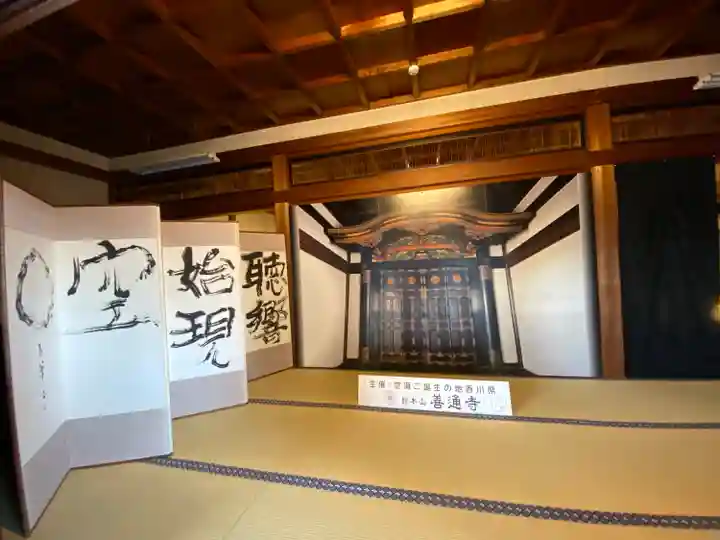 聴響
始現
空
主催:空海ご誕生の地香川県
総本山 善通寺